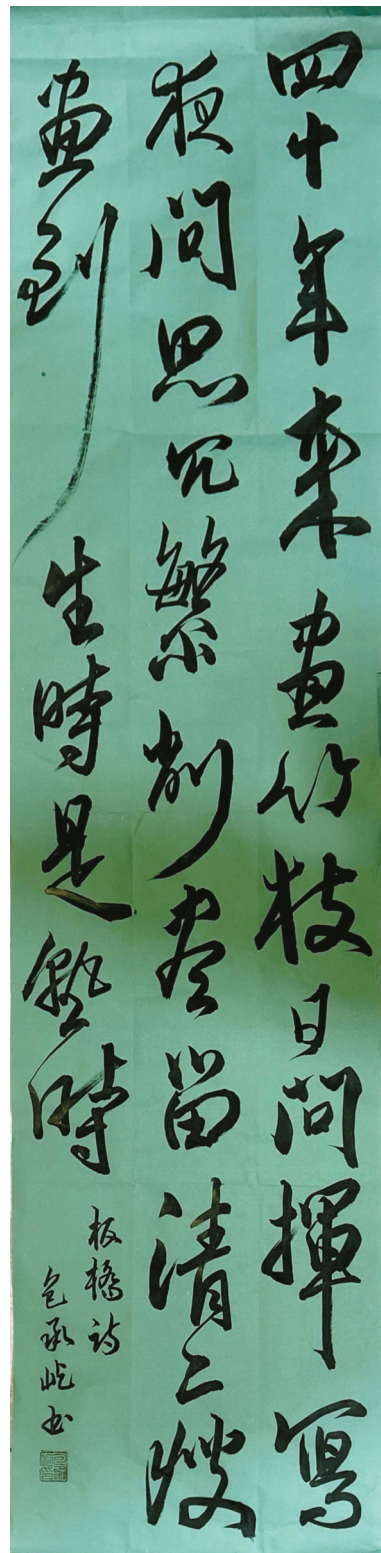 四十年來畫竹枝日間揮寫
夜間思冗繁削盡留清瘦
畫到生時是熟時
板橋詩
包承屹书